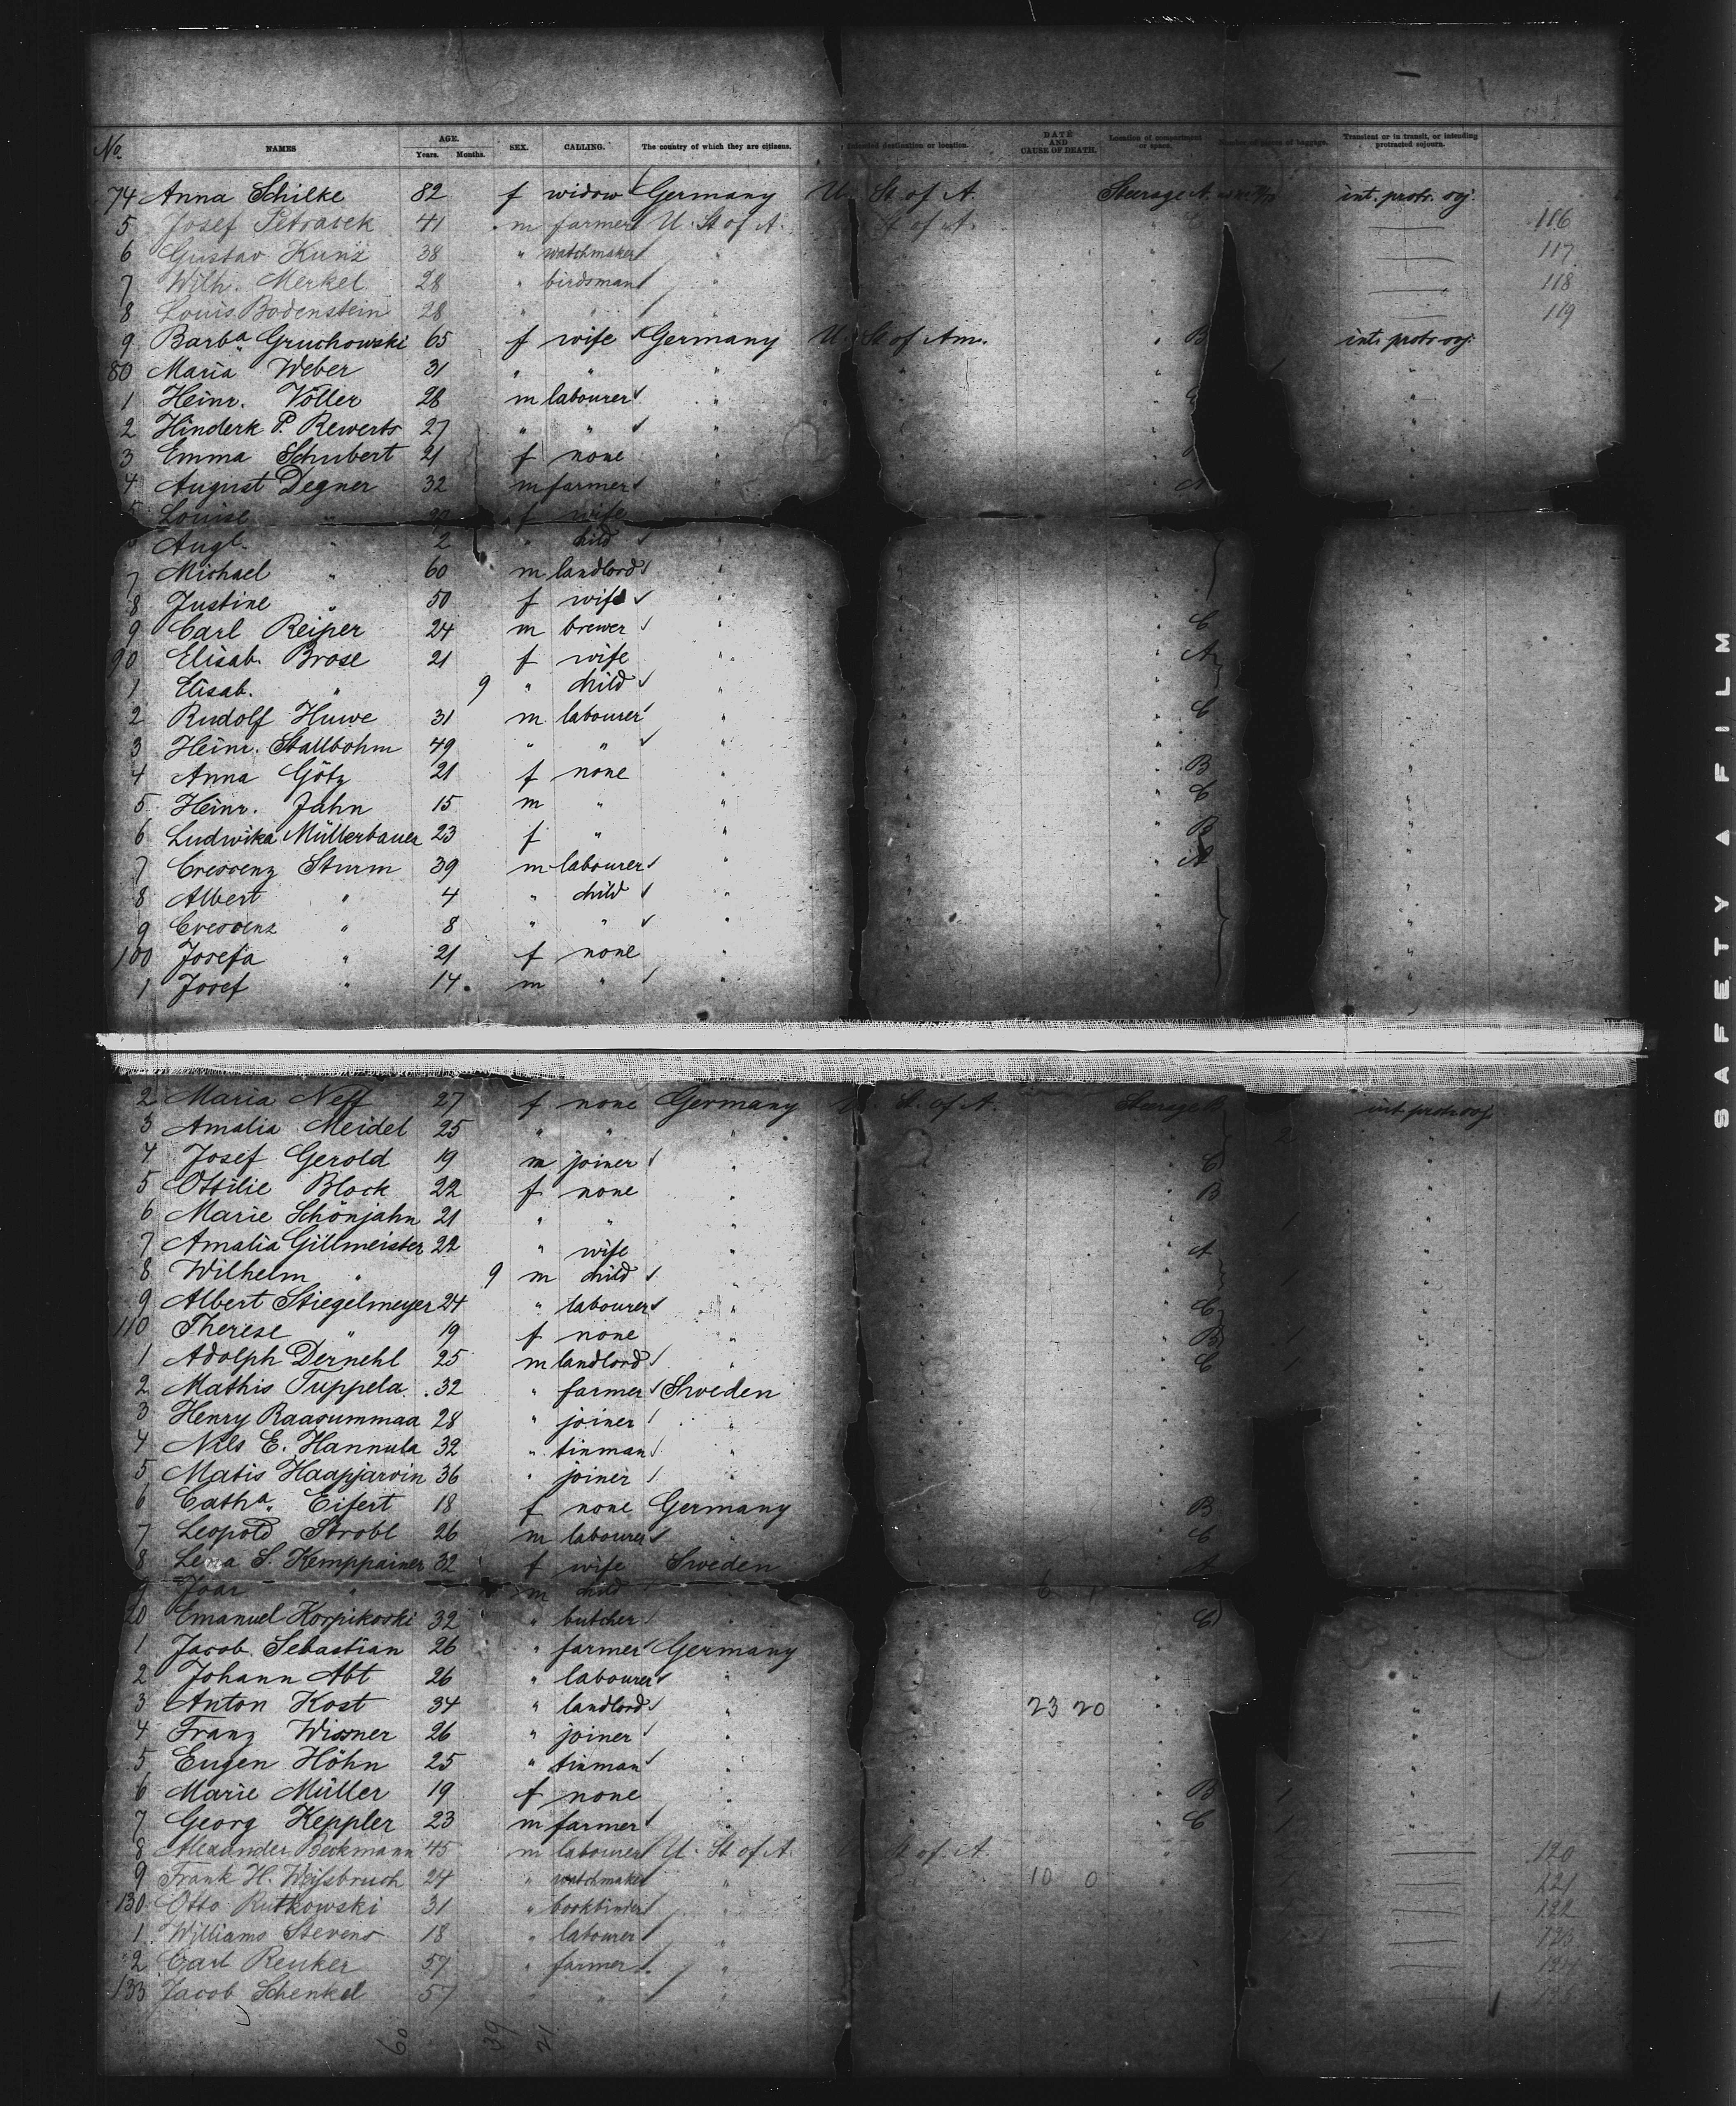 No. NAMES AGE. Years. Months. SEX. CALLING. The country of which they are citizens. Intended destination or location. DATE AND CAUSE OF DEATH. Location of compartment or space. Number of pieces of baggage. Transient or in transit, or intending protracted sojourn.
74 Anna Schilke 82 f widow Germany U. St of A. Steerage A. int. protr. soj.
5 Josef Petrasek 41 m farmer U. St of A. St of A. " 116
6 Gustav Kunz 38 " watchmaker " " 117
7 Wilh. Merkel 28 " birdsman " " 118
8 Louis Bodenstein 28 " " " " 119
9 Barba Gruchowski 65 f wife Germany U. St of Am. " B int. protr. soj.
80 Maria Weber 31 " " " " " 1 "
1 Heinr. Völler 28 m labourer " " " "
2 Hinderk P. Rewerts 27 " " " " " "
3 Emma Schubert 21 f none " " " "
4 August Degner 32 m farmer " " " A "
5 Louise " f wife
6 Augt. " 2 " child
7 Michael " 60 m landlord " " " "
8 Justine " 50 f wife " " " "
9 Carl Reiper 24 m brewer " " " C "
90 Elisab. Brose 21 f wife " " " A "
1 Elisab. " 9 " child " " " "
2 Rudolf Huwe 31 m labourer " " " C "
3 Heinr. Stallbohm 49 " " " " " "
4 Anna Götz 21 f none " " " B "
5 Heinr. Jahn 15 m " " " " C "
6 Ludwika Müllerbauer 23 f " " " " B "
7 Crescenz Sturm 39 m labourer " " " A "
8 Albert " 4 " child " " " "
9 Crescenz " 8 " " " " " "
100 Josefa " 21 f none " " " "
1 Josef " 14 m " " " " "
2 Maria Neff 27 f none Germany St. of A. Steerage B int. protr. soj.
3 Amalia Meidel 25 " " " " " 2 "
4 Josef Gerold 19 m joiner " " " C "
5 Ottilie Block 22 f none " " " B "
6 Marie Schönjahn 21 " " " " " 1 "
7 Amalia Gillmeister 22 " wife " " " A "
8 Wilhelm " 9 m child " " " 1 "
9 Albert Stiegelmeyer 24 " labourer " " " C "
110 Therese " 19 f none " " " B 1 "
1 Adolph Dernehl 25 m landlord " " " C 1 "
2 Mathis Tuppela 32 " farmer Sweden " " "
3 Henry Raasummaa 28 " joiner " " " "
4 Nils E. Hannula 32 " tinman " " " "
5 Matis Haapjarvin 36 " joiner " " " "
6 Catha. Eifert 18 f none Germany " " B "
7 Leopold Strobl 26 m labourer " " " C "
8 Lena S. Kemppainen 32 f wife Sweden " " A "
9 Joar " m child 6 1
20 Emanuel Korpikoski 32 " butcher " " " C "
1 Jacob Sebastian 26 " farmer Germany " " "
2 Johann Abt 26 " labourer " " " "
3 Anton Kost 34 " landlord " " 23 20 " "
4 Franz Wissner 26 " joiner " " " "
5 Eugen Höhn 25 " tinman " " " "
6 Marie Müller 19 f none " " " B 1 "
7 Georg Keppler 23 m farmer " " " C 1 "
8 Alexander Beckmann 45 m labourer U. St of A. St of A. " 120
9 Frank H. Weissbruch 24 " watchmaker " " 10 0 121
130 Otto Rutkowski 31 " bookbinder 122
1 Williams Stevens 18 " labourer " 123
2 Carl Reuker 57 " farmer " 124
133 Jacob Schenkel 57 " "
60 39 21
SAFETY FILM